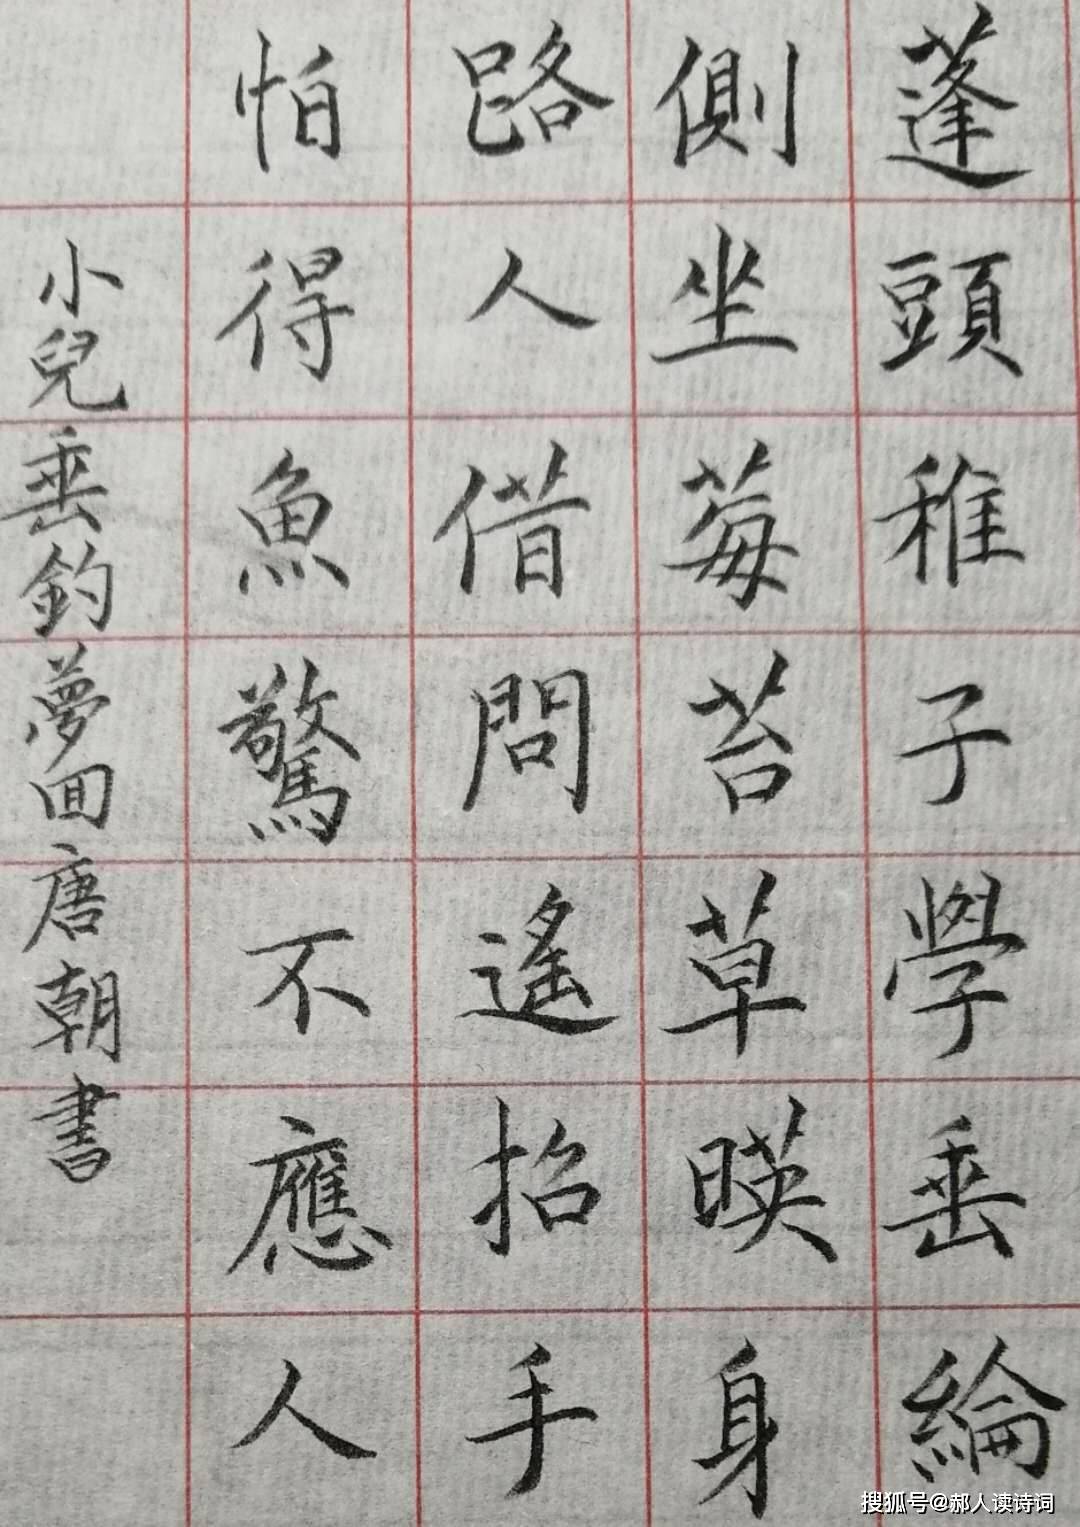 蓬頭稚子學垂綸
側坐莓苔草暎身
路人借問遙招手
怕得魚驚不應人
小兒垂釣夢回唐朝書
搜狐号@郝人读诗词